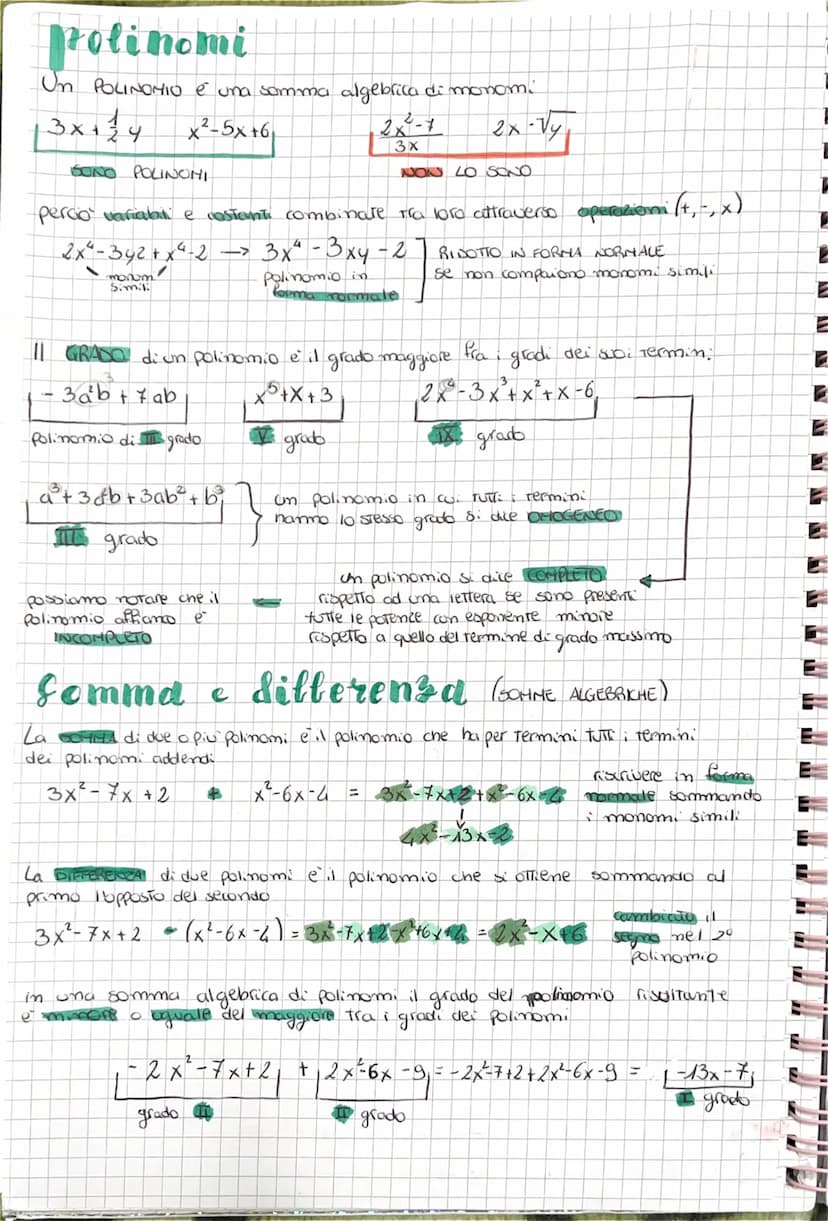 polinomi
Un POLINOMIO è una somma algebrica di monomi
3x + 1/2 y    x²-5x+6    2x²-7/3x    2x-√y
SONO POLINOMI    NON LO SONO
perciò variabili e costanti combinate tra loro attraverso operazioni (+,-,x)
2x⁴-3yz+x⁴-2 → 3x⁴-3xy-2    RIDOTTO IN FORMA NORMALE
monomi simili    polinomio in forma normale    se non compaiono monomi simili
Il GRADO di un polinomio è il grado maggiore fra i gradi dei suoi termini
-3a²b+7ab    x⁵+x+3    2x⁴-3x³+x²+x-6
polinomio di III grado    V grado    IX grado
a³+3a²b+3ab²+b³    un polinomio in cui tutti i termini
hanno lo stesso grado si dice OMOGENEO
III grado
un polinomio si dice COMPLETO
possiamo notare che il    rispetto ad una lettera se sono presenti
polinomio affianco è    tutte le potenze con esponente minore
INCOMPLETO    rispetto a quello del termine di grado massimo
Somma e differenza (SOMME ALGEBRICHE)
La somma di due o più polinomi è il polinomio che ha per termini tutti i termini
dei polinomi addendi
3x²-7x+2 + x²-6x-4 = 3x²-7x+2+x²-6x-4    riscrivere in forma
normale sommando
4x²-13x-2    i monomi simili
La DIFFERENZA di due polinomi è il polinomio che si ottiene sommando al
primo l'opposto del secondo
3x²-7x+2 - (x²-6x-4) = 3x²-7x+2-x²+6x+4 = 2x²-x+6    cambiato il
segno nel 2°
polinomio
in una somma algebrica di polinomi il grado del polinomio risultante
è minore o uguale del maggiore tra i gradi dei polinomi
-2x²-7x+2 + 2x²-6x-9 = -2x²-7+2+2x²-6x-9 = -13x-7
grado II    II grado    I grado